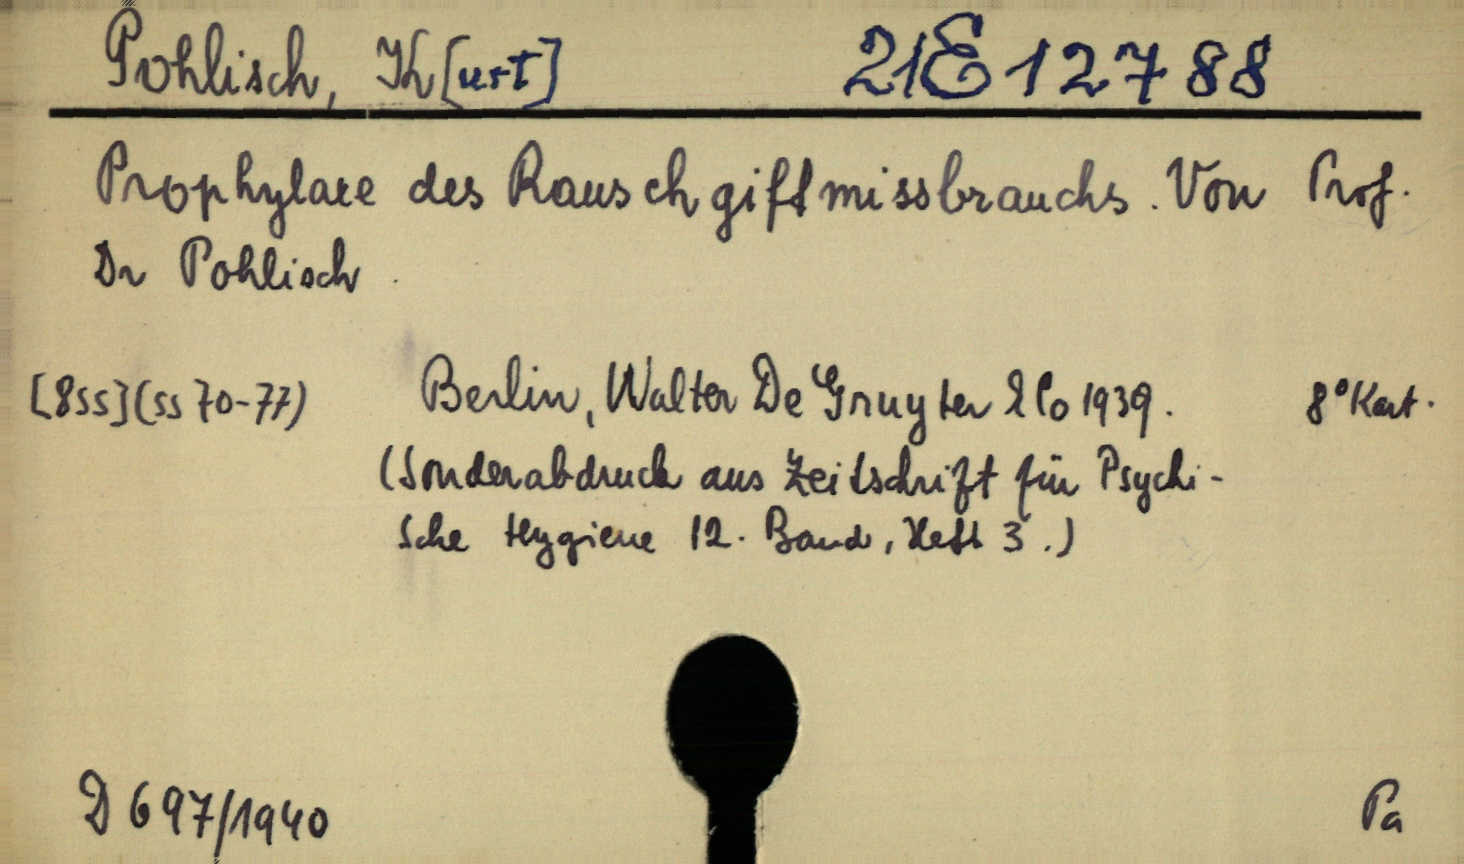 Pohlisch, K[urt] 21E12788
Prophylaxe des Rauschgiftmissbrauchs. Von Prof.
Dr Pohlisch.
[8ss](ss 70-77) Berlin, Walter De Gruyter & Co 1939. 8° Kart.
(Sonderabdruck aus Zeitschrift für Psychi-
sche Hygiene 12. Band, Heft 3.)
D 697/1940 Pa